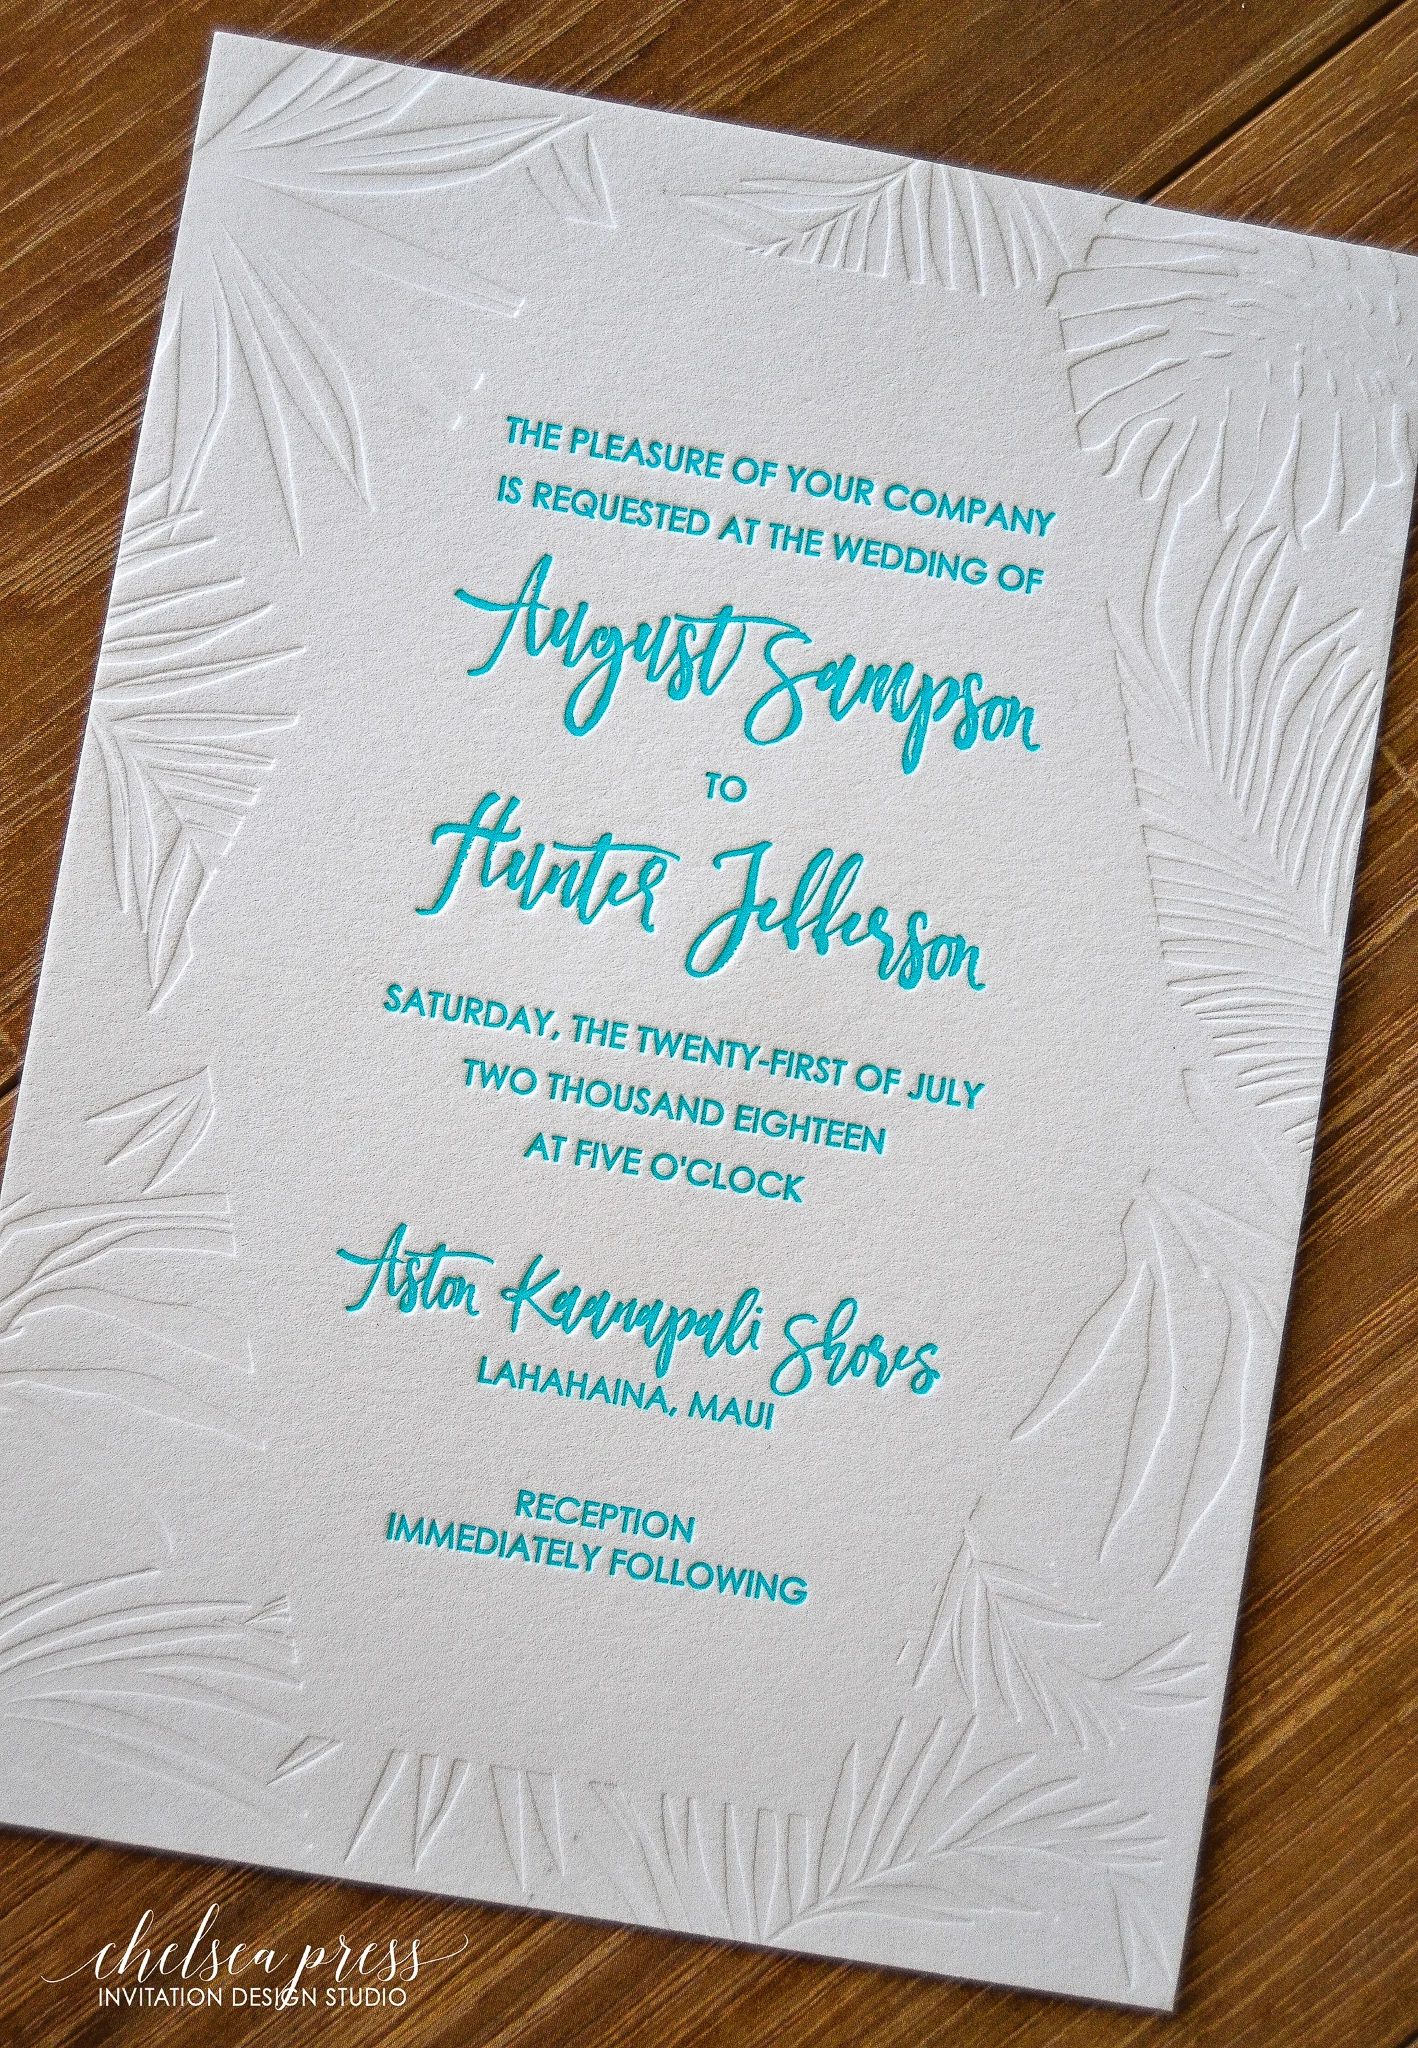 THE PLEASURE OF YOUR COMPANY
IS REQUESTED AT THE WEDDING OF
August Sampson
TO
Hunter Jefferson
SATURDAY, THE TWENTY-FIRST OF JULY
TWO THOUSAND EIGHTEEN
AT FIVE O'CLOCK
Aston Kaanapali Shores
LAHAHAINA, MAUI
RECEPTION
IMMEDIATELY FOLLOWING
chelsea press
INVITATION DESIGN STUDIO